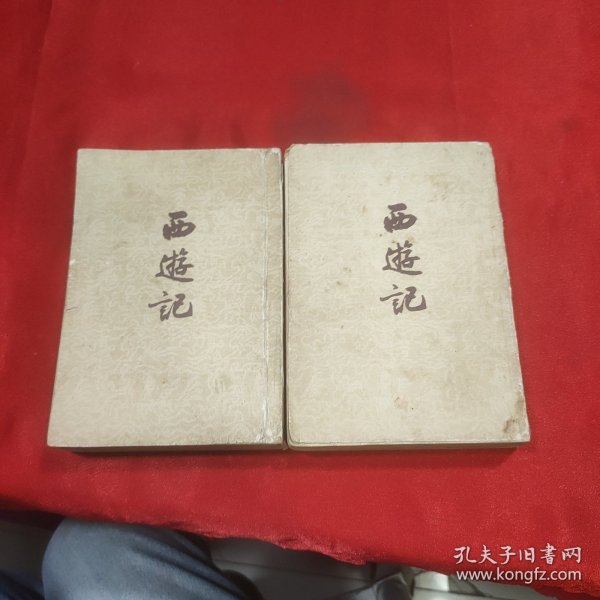 西遊記
西遊記
孔夫子旧书网
www.kongfz.com